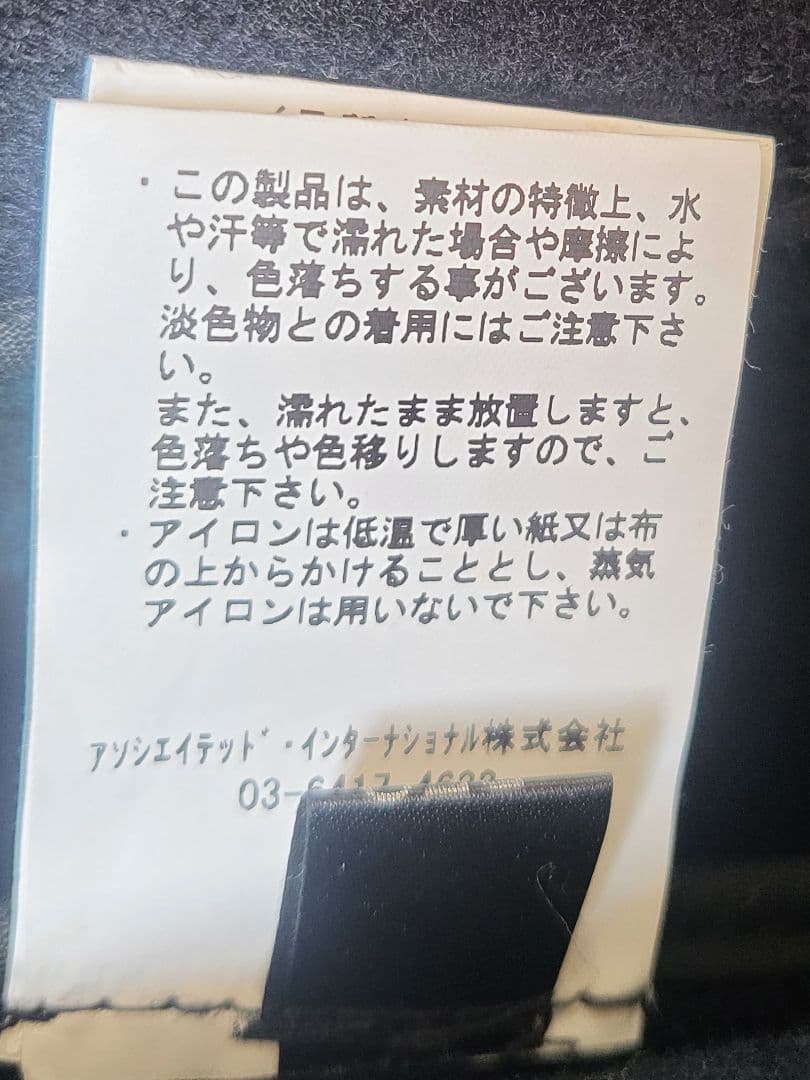 ・この製品は、素材の特徴上、水
や汗等で濡れた場合や摩擦によ
り、色落ちする事がございます。
淡色物との着用にはご注意下さ
い。
また、濡れたまま放置しますと、
色落ちや色移りしますので、ご
注意下さい。
・アイロンは低温で厚い紙又は布
の上からかけることとし、蒸気
アイロンは用いないで下さい。
アソシエイテッド・インターナショナル株式会社
03-6417-4633